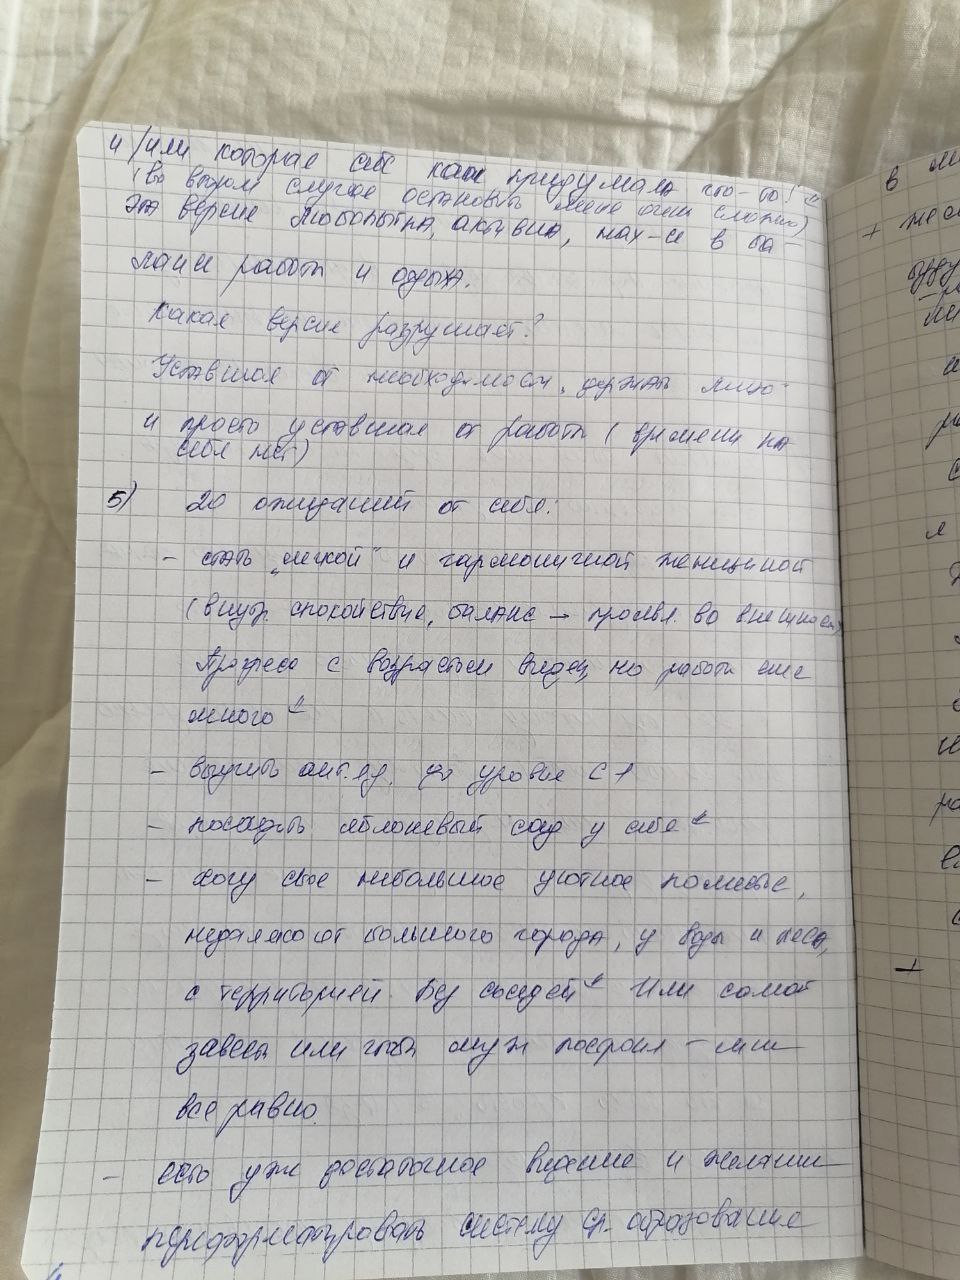 и/или которая себе как придумала что-то!
(во втором случае остановить меня очень сложно)
эта версия любопытна, активна, нах-ся в ба-
лансе работы и отдыха.
Какая версия разрушает?
Уставшая от необходимости держать лицо
и просто уставшая от работы (времени на
себя нет)
5) 20 ожиданий от себя:
- стать "легкой" и гармоничной женщиной
(внутр. спокойствие, баланс → проявл. во внешнем)
Прогресс с возрастом виден, но работы еще
много
- выучить анг. яз. до уровня С1
- посадить яблоневый сад у себя
- хочу свое небольшое уютное поместье,
недалеко от большого города, у воды и леса,
с территорией без соседей Или самой
завести или чтоб муж построил - мне
все равно.
- есть уже достаточное видение и желание
переформатировать систему ср. образования
в
+
+